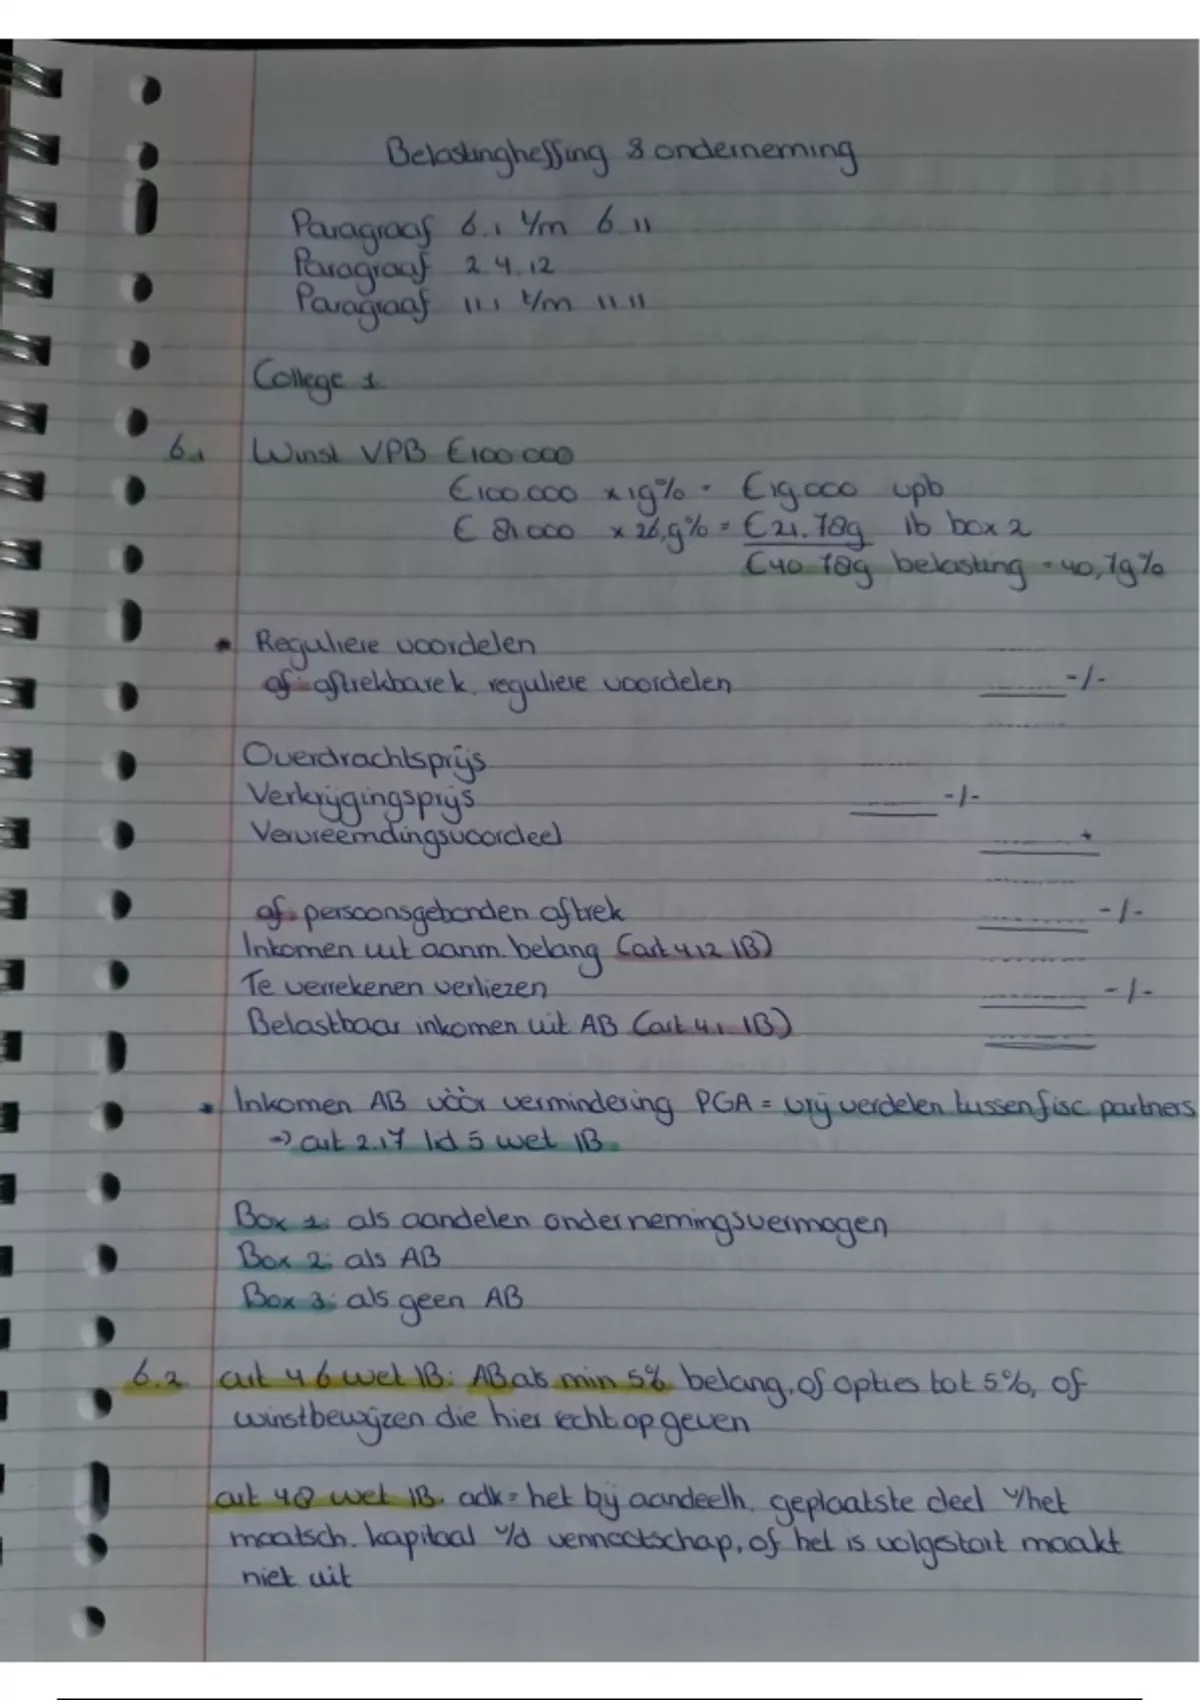 Belastingheffing & onderneming
Paragraaf 6.1 t/m 6.11
Paragraaf 2.4.12
Paragraaf 11.1 t/m 11.11
College 1
6.1 Winst VPB €100.000
€100.000 x 19% = €19.000 vpb
€ 81.000 x 26,9% = €21.789 ib box 2
€40.789 belasting = 40,79%
• Reguliere voordelen ......
af: aftrekbare k. reguliere voordelen ...... -/-
......
Overdrachtsprijs ......
Verkrijgingsprijs ...... -/-
Vervreemdingsvoordeel ...... +
......
af: persoonsgebonden aftrek ...... -/-
Inkomen uit aanm. belang (art 4.12 IB) ......
Te verrekenen verliezen ...... -/-
Belastbaar inkomen uit AB (art 4.1 IB) ......
• Inkomen AB vóór vermindering PGA = vrij verdelen tussen fisc partners
→ art 2.17 lid 5 wet IB
Box 1: als aandelen ondernemingsvermogen
Box 2: als AB
Box 3: als geen AB
6.2 art 4.6 wet IB: AB als min 5% belang, of opties tot 5%, of
winstbewijzen die hier recht op geven
art 4.8 wet IB. adk = het bij aandeelh. geplaatste deel v/het
maatsch. kapitaal v/d vennootschap, of het is volgestort maakt
niet uit